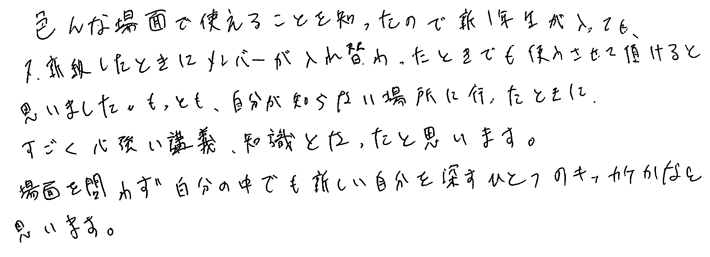 色んな場面で使えることを知ったので新1年生が入っても、
又、進級したときにメンバーが入れ替わったときでも使わさせて頂けると
思いました。もっとも、自分が知らない場所に行ったときに、
すごく心強い講義、知識となったと思います。
場面を問わず自分の中でも新しい自分を探すひとつのキッカケかなと
思います。